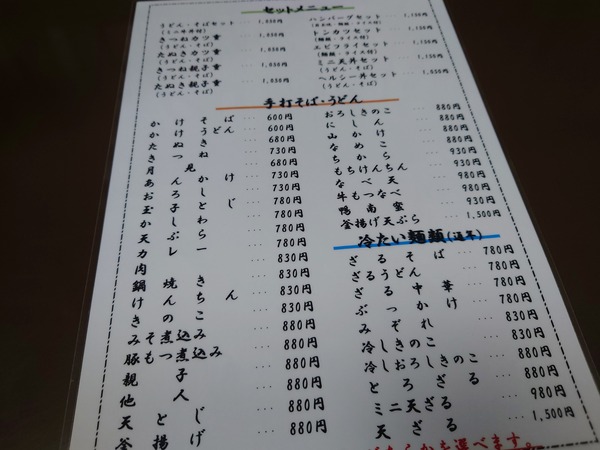 セットメニュー
うどん・そばセット
(ミニ牛丼付)
きつねカツ重
(うどん・そば)
たぬきカツ重
(うどん・そば)
きつね親子重
(うどん・そば)
たぬき親子重
(うどん・そば)
ハンバーグセット
トンカツセット
エビフライセット
ミニ天丼セット
(うどん・そば)
ヘルシー丼セット
(うどん・そば)
手打そば・うどん
かけそば … 600円
かけうどん … 600円
たぬき … 680円
きつね … 730円
月見 … 680円
あんかけ … 730円
おろし … 730円
玉子とじ … 780円
かしわ … 780円
天ぷら … 780円
カレー … 780円
肉 … 830円
鍋焼き … 830円
けんちん … 830円
きのこ … 830円
みそ煮込み … 880円
豚もつ煮込み … 880円
親子 … 880円
他人 … 880円
天とじ … 880円
釜揚げ … 880円
おろしきのこ … 880円
にしん … 880円
山かけ … 880円
なめこ … 880円
ちから … 930円
もちけんちん … 930円
なべ天 … 980円
牛もつなべ … 980円
鴨南蛮 … 930円
釜揚げ天ぷら … 1,500円
冷たい麺類(通年)
ざるそば … 780円
ざるうどん … 780円
ざる中華 … 780円
ぶっかけ … 780円
みぞれ … 830円
冷しきのこ … 830円
冷しおろしきのこ … 880円
とろざる … 880円
ミニ天ざる … 980円
天ざる … 1,500円
どちらかを選べます。